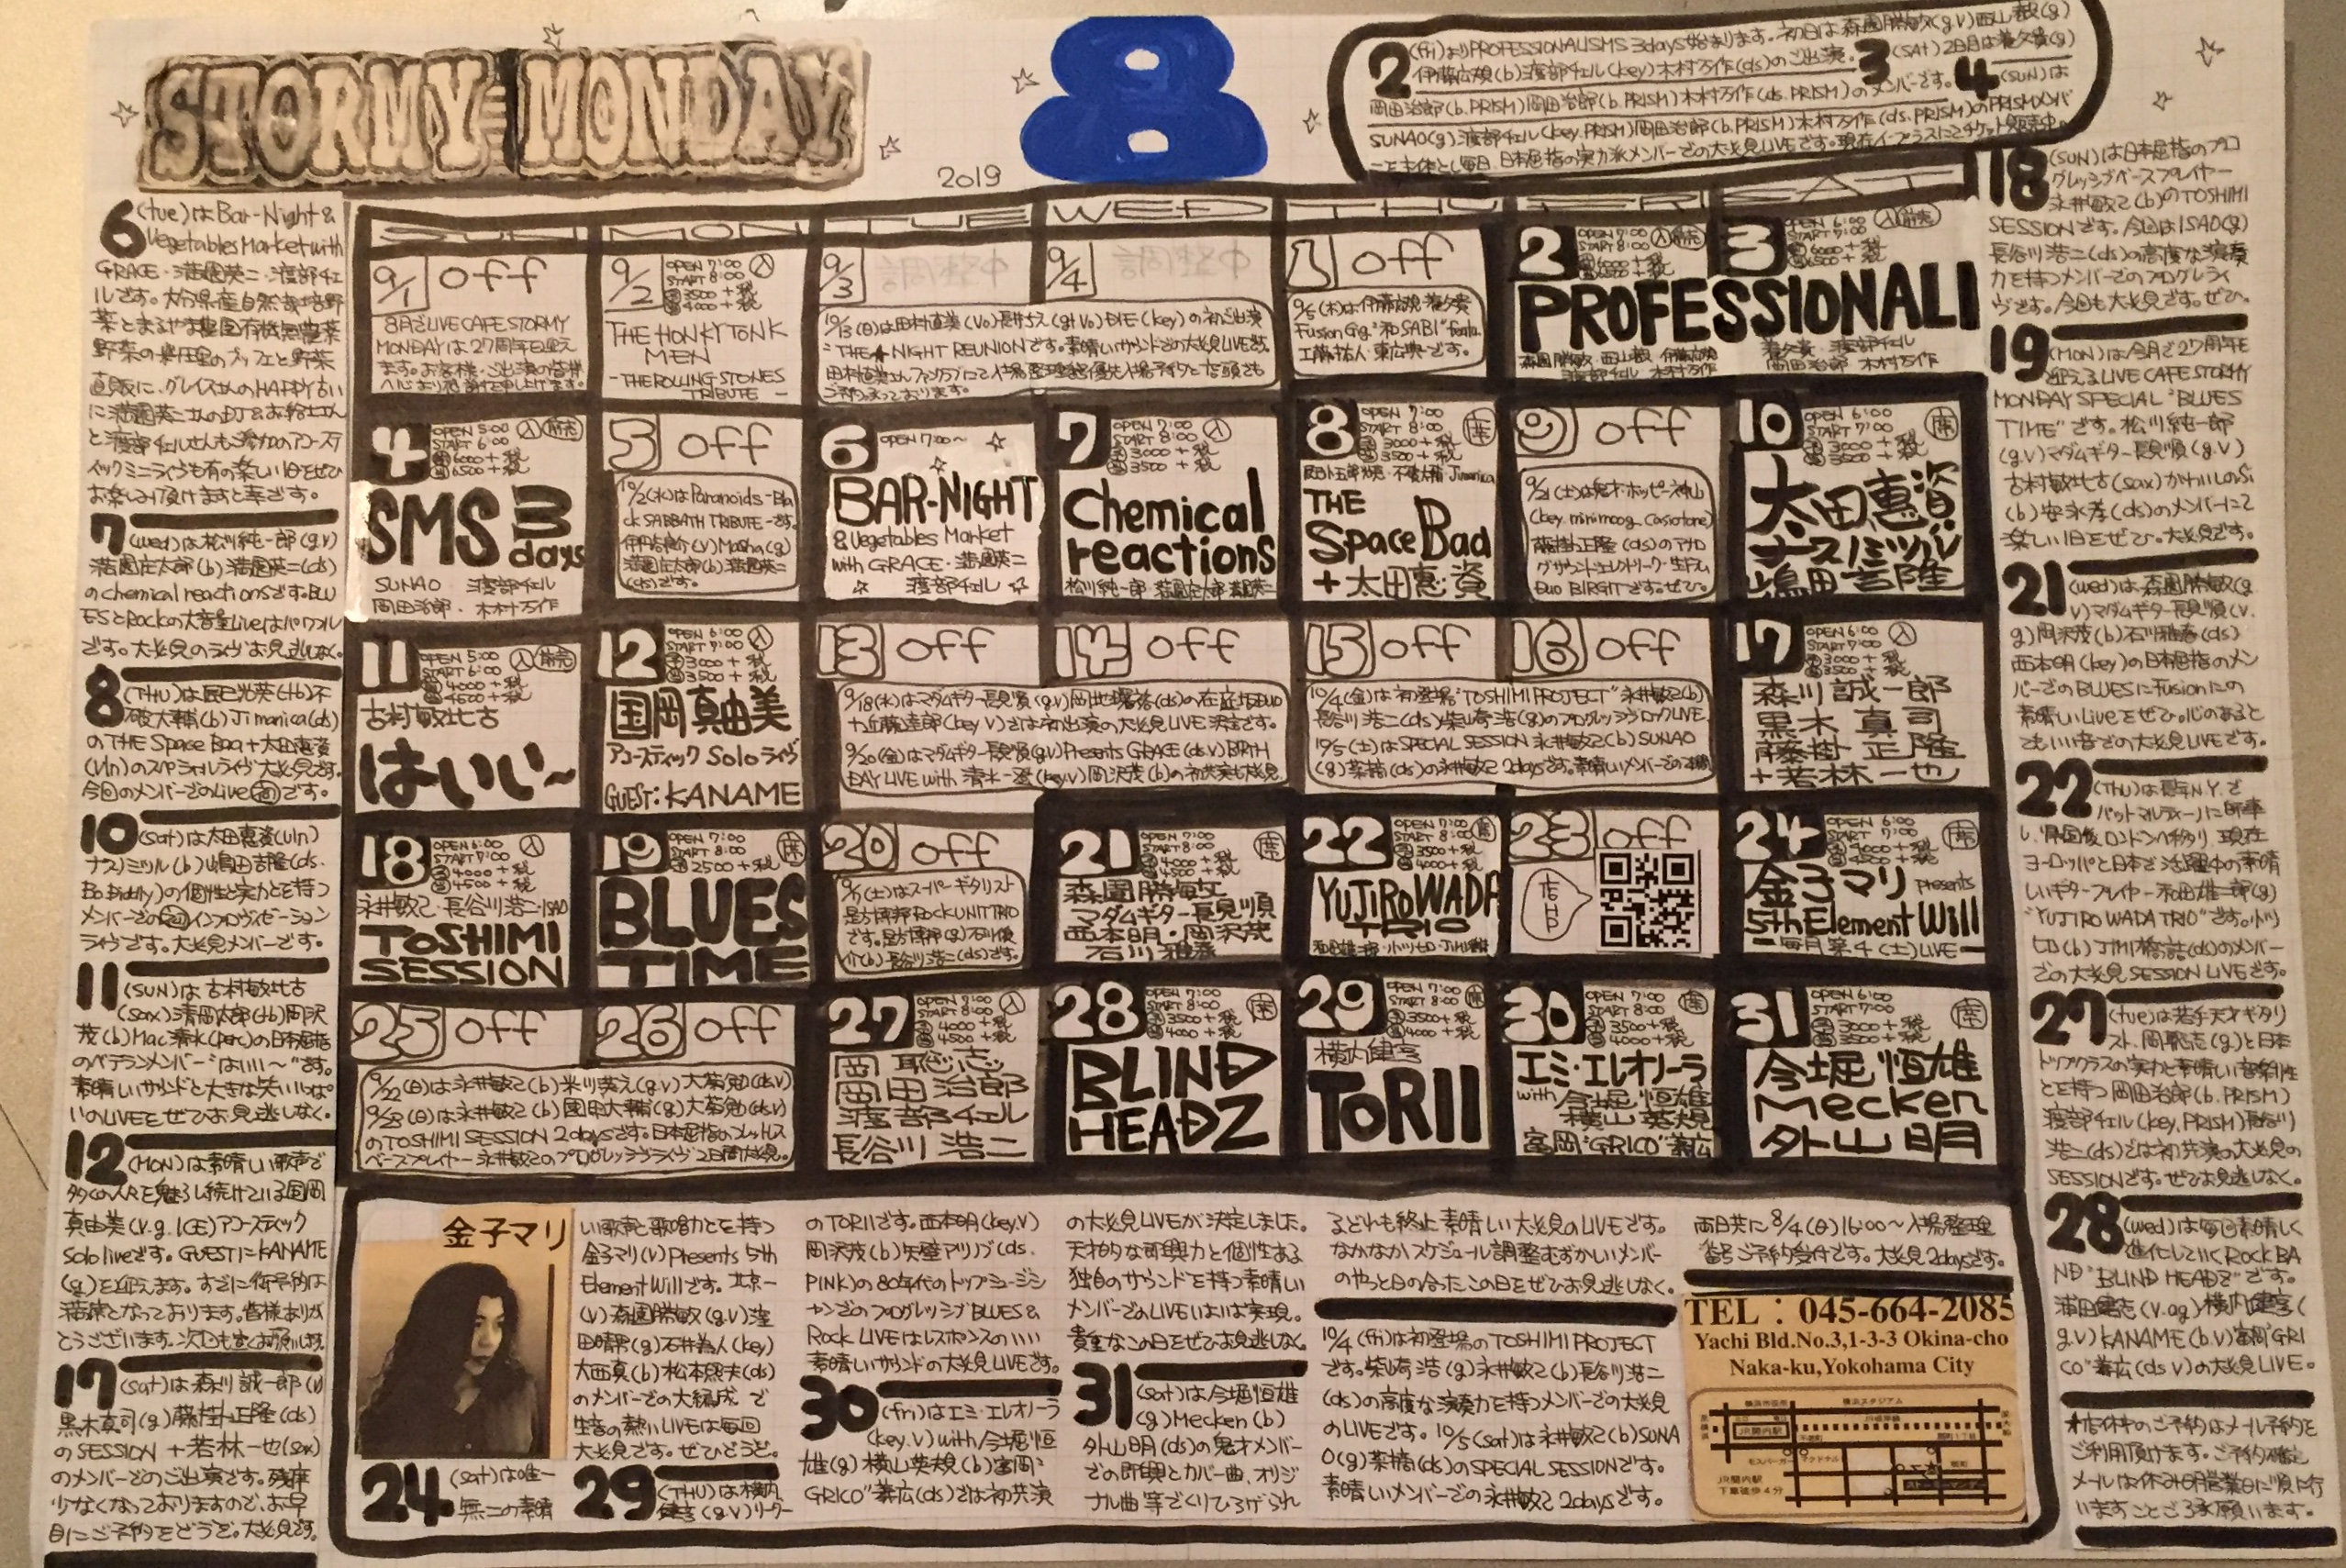 STORMY MONDAY
2019
8
2(fri)よりPROFESSIONALISMS 3days始まります。初日は森園勝敏(g.v)西山毅(g)
伊藤広規(b)渡部チェル(key)木村万作(ds)のご出演。3(SAT)2日目は
岡田治郎(b.PRISM)木村万作(ds.PRISM)のメンバーです。4(SUN)は
SUNAO(g)渡部チェル(key.PRISM)岡田治郎(b.PRISM)木村万作(ds.PRISM)のPRISMメンバ
SUN MON TUE WED THU FRI SAT
9/1 off
8月でLIVE CAFE STORMY
MONDAYは27周年を迎え
ます。お客様・ご出演の皆様
9/2 OPEN 7:00
START 8:00
3500+税
4000+税
THE HONKY TONK
MEN
-THE ROLLING STONES
TRIBUTE-
9/3 調整中
9/4 調整中
10/13(日)は田村直美(Vo)長井ちえ(g+Vo)DIE(key)の初ご出演
"THE★NIGHT REUNION"です。素晴しいサウンドでの大必見LIVEです。
1 off
9/5(木)は伊藤広規
Fusion Gig "和SABI" feat.
2 OPEN 7:00
START 8:00
6000+税
6500+税
3 OPEN 6:00
6000+税
6500+税
PROFESSIONALI
森園勝敏・西山毅・伊藤広規
渡部チェル 木村万作
渡部チェル
岡田治郎 木村万作
4 OPEN 5:00
START 6:00
6000+税
6500+税
SMS 3
days
SUNAO 渡部チェル
岡田治郎・木村万作
5 off
10/2(水)はParanoids-Bla
ck SABBATH TRIBUTE-です。
6 OPEN 7:00~
BAR-NIGHT
& Vegetables Market
with GRACE・満園英二
渡部チェル
7 OPEN 7:00
START 8:00
3000+税
3500+税
Chemical
reactions
松川純一郎・満園庄太郎・満園英二
8 OPEN 7:00
START 8:00
3000+税
3500+税
辰巳小五郎光英・不破大輔・Jimanica
THE
Space Bad
+太田惠資
9 off
9/21(土)は鬼才・ホッピー神山
(key.minimoog.casiotone)
藤掛正隆(ds)のアナロ
グサウンドエレクトリック・生ドラム
Duo BIRGITです。ぜひ。
10 OPEN 6:00
START 7:00
3000+税
3500+税
太田惠資
ナスノミツル
嶋田吉隆
11 OPEN 5:00
START 6:00
4000+税
4500+税
古村敏比古
はいい~
12 OPEN 6:00
START 7:00
3000+税
3500+税
国岡真由美
アコースティック Solo ライヴ
GUEST:KANAME
13 off
14 off
9/18(水)はマダムギター長見順(g.v)岡地曙裕(ds)の在庄坂Duo
+近藤達郎(key.v)とは初出演の大必見LIVE決定です。
9/20(金)はマダムギター長見順(g.v)Presents GRACE(ds.v)BIRTH
DAY LIVE with 清水一登(key.v)岡沢茂(b)の初共演も大必見。
15 off
16 off
10/4(金)は初登場"TOSHIMI PROJECT"永井敏己(b)
長谷川浩二(ds)柴崎浩(g)のプログレッシヴロックLIVE。
10/5(土)はSPECIAL SESSION 永井敏己(b)SUNAO
(g)菜摘(ds)の永井敏己2daysです。素晴しいメンバーでの
17 OPEN 6:00
START 7:00
3000+税
3500+税
森川誠一郎
黒木真司
藤掛正隆
+若林一也
18 OPEN 6:00
START 7:00
4000+税
4500+税
永井敏己・長谷川浩二・ISAO
TOSHIMI
SESSION
19 OPEN 7:00
START 8:00
2500+税
BLUES
TIME
20 off
9/7(土)はスーパーギタリスト
是方博邦ROCK UNIT TRIO
です。是方博邦(g)石川俊
介(b)長谷川浩二(ds)です。
21 OPEN 7:00
START 8:00
4000+税
4500+税
森園勝敏
マダムギター長見順
西本明・岡沢茂
石川雅春
22 OPEN 7:00
START 8:00
3500+税
4000+税
YUJIRO WADA
TRIO
和田雄二郎・小ツヒロ・JIMI橋詰
23 off
店HP
24 OPEN 6:00
START 7:00
4000+税
4500+税
金子マリ presents
5th Element Will
-毎月第4(土)LIVE-
25 off
26 off
9/22(日)は永井敏己(b)米川英之(g.v)大菊勉(ds.v)
9/23(日)は永井敏己(b)園田大輔(g)大菊勉(ds.v)
のTOSHIMI SESSION 2daysです。日本屈指のフレットレス
ベースプレイヤー永井敏己のプログレッシヴライヴ2日間大必見。
27 OPEN 7:00
START 8:00
4000+税
4500+税
岡聡志
岡田治郎
渡部チェル
長谷川浩二
28 OPEN 7:00
START 8:00
3500+税
4000+税
BLIND
HEADZ
29 OPEN 7:00
START 8:00
3500+税
4000+税
横内健亨
TORII
30 OPEN 7:00
START 8:00
3500+税
4000+税
エミ・エレオノーラ
with 今堀恒雄
横山英規
富岡"GRICO"義広
31 OPEN 6:00
START 7:00
3000+税
3500+税
今堀恒雄
Mecken
外山明
6(tue)はBar-Night &
Vegetables Market with
GRACE・満園英二・渡部チェ
ルです。大分県産自然栽培野
菜とまるやま農園有機無農薬
野菜の
直販に、グレイスさんのHAPPY占い
に満園英二さんのDJ&お絵描さん
と渡部チェルさんも参加のアコーステ
ィックミニライヴも有の楽しい1日をぜひ
お楽しみ頂けますと幸です。
7(wed)は松川純一郎(g.v)
満園庄太郎(b)満園英二(ds)
のchemical reactionsです。BLU
ESとRockの大音量Liveはパワフル
です。大必見のライヴお見逃しなく。
8(THU)は辰巳光英(tb)不
破大輔(b)Jimanica(ds)
のTHE Space Baa+太田惠資
(vln)のスペシャルライヴ大必見です。
今回のメンバーでのLiveは㊝です。
10(sat)は太田惠資(vln)
ナスノミツル(b)嶋田吉隆(ds.
Bo Diddly)の個性と実力とを持つ
メンバーでのインプロヴィゼーション
ライヴです。大必見メンバーです。
11(SUN)は古村敏比古
(sax)清岡太郎(tb)岡沢
茂(b)Mac清水(perc)の日本屈指
のベテランメンバー"はいい~"です。
素晴しいサウンドと大きな笑いいっぱ
いのLIVEをぜひお見逃しなく。
12(MON)は素晴しい歌声で
多くの人々を魅了し続けている国岡
真由美(v.g.ICE)アコースティック
Solo liveです。GUESTにKANAME
(g)を迎えます。すでに御予約は
満席となっております。皆様ありが
とうございます。次回も宜しくお願いします。
17(sat)は森川誠一郎(v)
黒木真司(g)藤掛正隆(ds)
のSESSION+若林一也(sax)
のメンバーでのご出演です。残席
少なくなっておりますので、お早
目にご予約をどうぞ。大必見です。
18(SUN)は日本屈指のプロ
グレッシブベースプレイヤー
永井敏己(b)のTOSHIMI
SESSIONです。今回はISAO(g)
長谷川浩二(ds)の高度な演奏
力を持つメンバーでのプログレライ
ヴです。今回も大必見です。ぜひ。
19(MON)は今月で27周年を
迎えるLIVE CAFE STORMY
MONDAY SPECIAL "BLUES
TIME"です。松川純一郎
(g.v)マダムギター長見順(g.v)
古村敏比古(sax)かわいしのSi
(b)安永孝(ds)のメンバーにて
楽しい1日をぜひ。大必見です。
21(wed)は森園勝敏(g.
v)マダムギター長見順(v.
g)岡沢茂(b)石川雅春(ds)
西本明(key)の日本屈指のメン
バーでのBLUESにFusionにの
素晴しいLiveをぜひ。心のあると
てもいい音での大必見LIVEです。
22(THU)は長年N.Y.で
パットマルティーノに師事
し、帰国後ロンドンへ移り現在
ヨーロッパと日本で活躍中の素晴
しいギタープレイヤー和田雄二郎(g)
"YUJIRO WADA TRIO"です。小ツ
ヒロ(b)JIMI橋詰(ds)のメンバー
での大必見SESSION LIVEです。
27(tue)は若手天才ギタリ
スト、岡聡志(g)と日本
トップクラスの実力と素晴しい音楽性
とを持つ岡田治郎(b.PRISM)
渡部チェル(key.PRISM)長谷川
浩二(ds)とは初共演の大必見の
SESSIONです。ぜひお見逃しなく。
28(wed)は毎回素晴しく
進化していくROCK BA
ND "BLIND HEADZ"です。
浦田健志(v.ag)横内健亨(
g.v)KANAME(b.v)富岡"GRI
CO"義広(ds.v)の大必見LIVE。
*店休中のご予約はメール予約を
ご利用頂けます。ご予約確定
メールは休み明営業日に順に行
いますことご了承願います。
金子マリ
24(sat)は唯一
無二の素晴
しい歌声と歌唱力とを持つ
金子マリ(v)Presents 5th
Element Willです。北京一
(v)森園勝敏(g.v)窪
田晴男(g)石井為人(key)
大西真(b)松本照夫(ds)
のメンバーでの大編成で
生音の熱いLIVEは毎回
大必見です。ぜひどうぞ。
29(THU)は横内
健亨(g.v)リーダー
のTORIIです。西本明(key.v)
岡沢茂(b)矢壁アツノブ(ds.
PINK)の80年代のトップミュージシ
ャンでのプログレッシブBLUES&
Rock LIVEはレスポンスのいい
素晴しいサウンドの大必見LIVEです。
30(fri)はエミ・エレオノーラ
(key.v)with今堀恒
雄(g)横山英規(b)富岡"
GRICO"義広(ds)では初共演
の大必見LIVEが決定しました。
天才的な即興力と個性ある
独自のサウンドを持つ素晴しい
メンバーでのLIVEいよいよ実現。
貴重なこの日をぜひお見逃しなく。
31(sat)は今堀恒雄
(g)Mecken(b)
外山明(ds)の鬼才メンバー
での即興とカバー曲、オリジ
ナル曲等でくりひろげられ
るどれも終止素晴しい大必見のLIVEです。
なかなかスケジュール調整むずかしいメンバー
のやっと日の合ったこの日をぜひお見逃しなく。
10/4(fri)は初登場のTOSHIMI PROJECT
です。柴崎浩(g)永井敏己(b)長谷川浩二
(ds)の高度な演奏力を持つメンバーでの大必見
のLIVEです。10/5(sat)は永井敏己(b)SUNA
O(g)菜摘(ds)のSPECIAL SESSIONです。
素晴しいメンバーでの永井敏己2daysです。
両日共に8/4(日)16:00~入場整理
番号ご予約受付です。大必見2daysです。
TEL：045-664-2085
Yachi Bld.No.3,1-3-3 Okina-cho
Naka-ku,Yokohama City
横浜スタジアム
JR関内駅
JR関内駅
下車徒歩4分